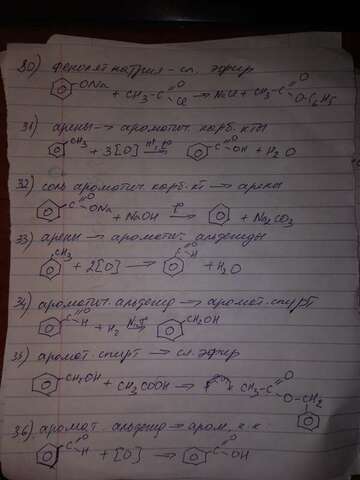 30) фенолят натрия – сл. эфир
ONa + CH₃ – C O Cl → NaCl + CH₃ – C O O–C₆H₅
31) арены → ароматич. карб. к-ты
CH₃ + 3[O] → C O OH + H₂O
32) соль ароматич. карб. к-т → арены
C O ONa + NaOH → + Na₂CO₃
33) арены → ароматич. альдегиды
CH₃ + 2[O] → C O H + H₂O
34) ароматич. альдегид → аромат. спирт
C O H + H₂ → CH₂OH
35) аромат. спирт → сл. эфир
CH₂OH + CH₃COOH → CH₃ – C O O – CH₂
36) аромат. альдегид → аром. к.к.
C O H + [O] → C O OH